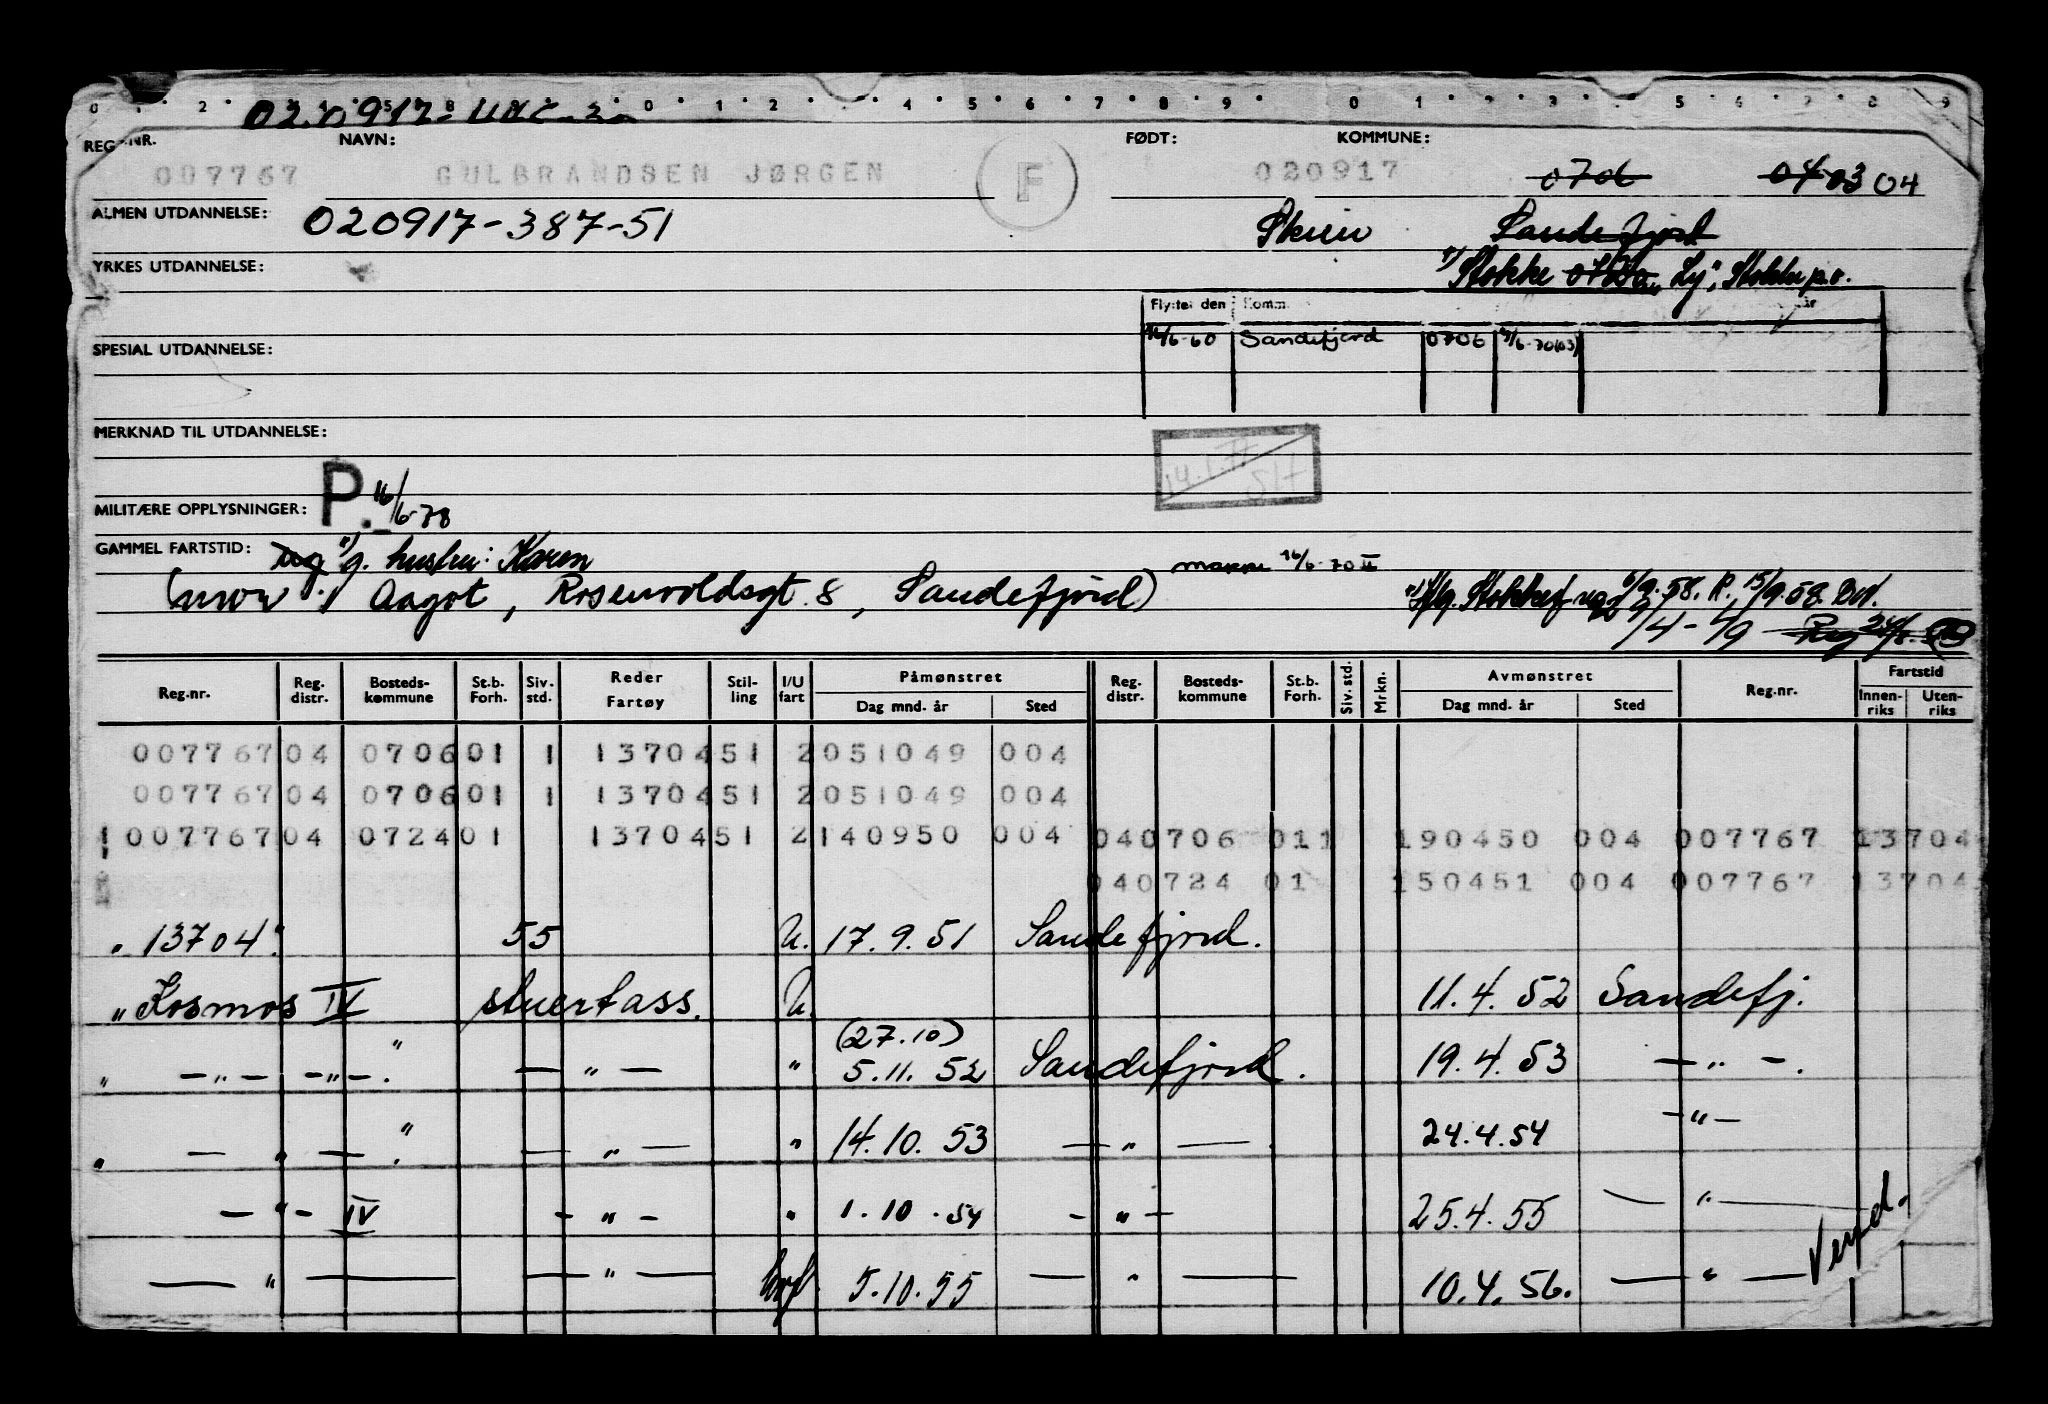 REG.-NR. NAVN: FØDT: KOMMUNE:
007767 GULBRANDSEN JØRGEN F 020917 0706 04 03 04
ALMEN UTDANNELSE: 020917-387-51 Skien Sandefjord
YRKES UTDANNELSE: Stokke "Ly", Stokke p.o.
Flyttet den Komm. år
16/6-60 Sandefjord 0706
SPESIAL UTDANNELSE:
MERKNAD TIL UTDANNELSE:
14.1.77
MILITÆRE OPPLYSNINGER: P. 16/6-78
GAMMEL FARTSTID: g. hustru: Karen
(mor: Aagot, Rosenvoldsgt. 8, Sandefjord) 16/6-70
Reg.nr. Reg. distr. Bosteds- kommune St.b. Forh. Siv. std. Reder Fartøy Stil- ling I/U fart Påmønstret Dag mnd. år Sted Reg. distr. Bosteds- kommune St.b. Forh. Siv. std. Mrkn. Avmønstret Dag mnd. år Sted Reg.nr. Fartstid Innen- riks Uten- riks
007767 04 0706 01 1 13704 51 2 051049 004
007767 04 0706 01 1 13704 51 2 051049 004
007767 04 0724 01 13704 51 2 140950 004 04 0706 01 1 190450 004 007767 13704
04 0724 01 150451 004 007767 13704
" 13704" 55 U. 17.9.51 Sandefjord.
" Kosmos IV stuertass. U. 11.4.52 Sandefj.
(27.10)
" — " — — " — . — " — " 5.11.52 Sandefjord. 19.4.53 — " — .
" — " — " . — " — " 14.10.53 — " — . 24.4.54 — " —
— " — IV — " — " 1.10.54 — " — 25.4.55 — " —
— " — — " — 5.10.55 — " — 10.4.56. — " —
Vend.